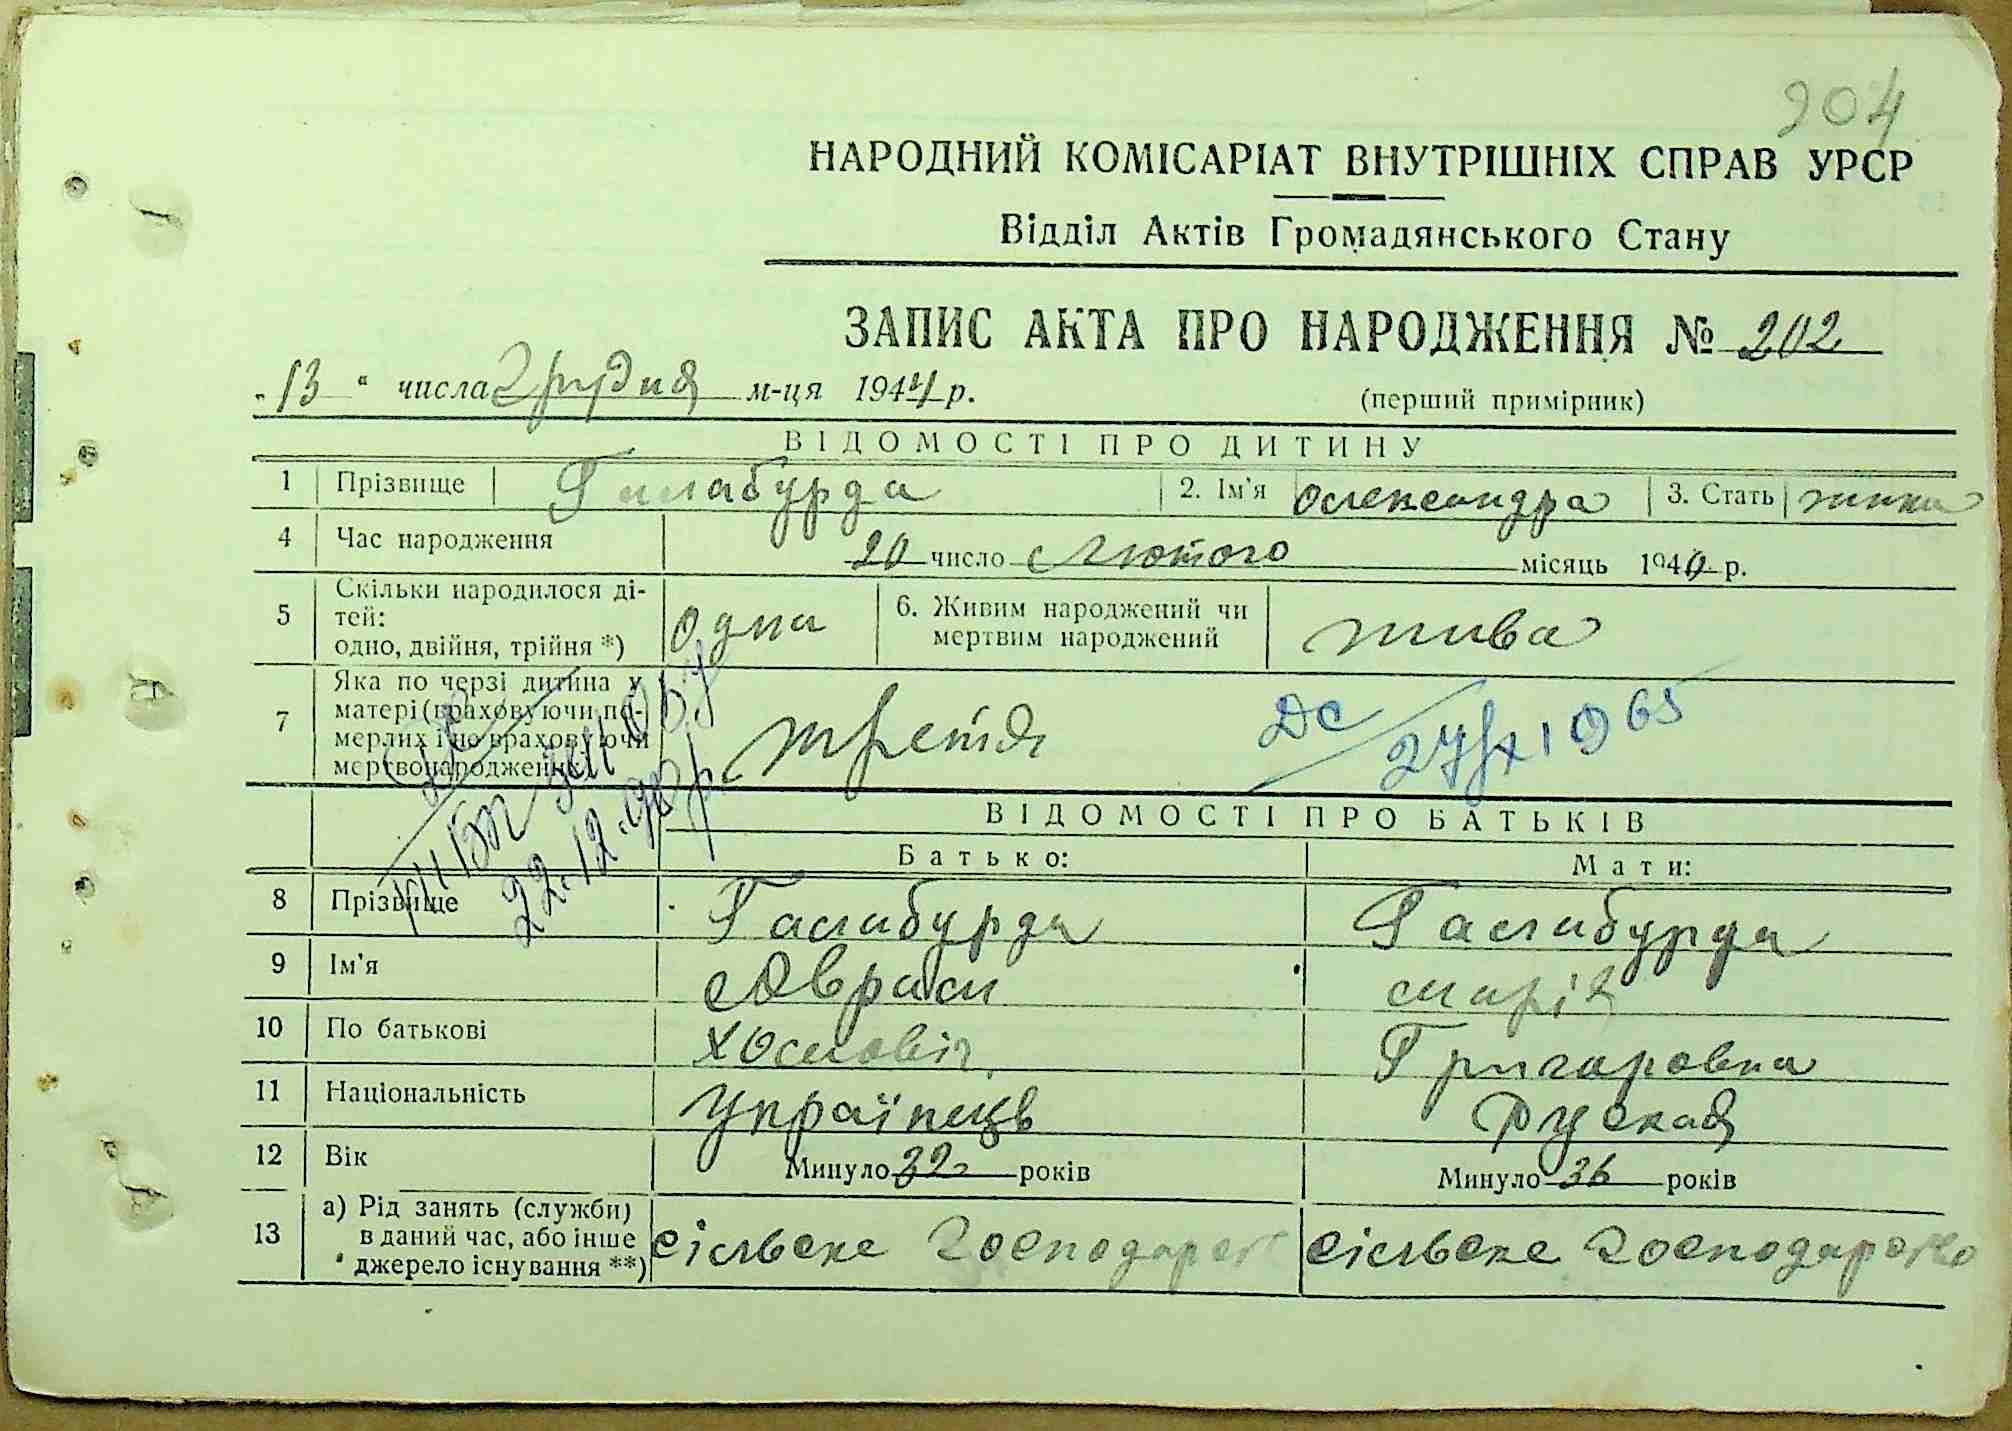 204
НАРОДНИЙ КОМІСАРІАТ ВНУТРІШНІХ СПРАВ УРСР
Відділ Актів Громадянського Стану
ЗАПИС АКТА ПРО НАРОДЖЕННЯ № 202
„13“ числа грудня м-ця 1944 р.
(перший примірник)
ВІДОМОСТІ ПРО ДИТИНУ
1 Прізвище Галабурда 2. Ім'я Олександра 3. Стать жінка
4 Час народження 20 число Лютого місяць 1940 р.
5 Скільки народилося ді-
тей:
одно, двійня, трійня *) одна 6. Живим народжений чи
мертвим народжений жива
7 Яка по черзі дитина у
матері (враховуючи по-
мерлих і не враховуючи
мертвонароджених) третя
ДС 27/X 1965
22.12.90р.
ВІДОМОСТІ ПРО БАТЬКІВ
Батько: Мати:
8 Прізвище Галабурда Галабурда
9 Ім'я Аврам марія
10 По батькові Григоровна
11 Національність Українець Руская
12 Вік Минуло 32 років Минуло 36 років
13 а) Рід занять (служби)
в даний час, або інше
джерело існування **) сільске господарство сільске господарство